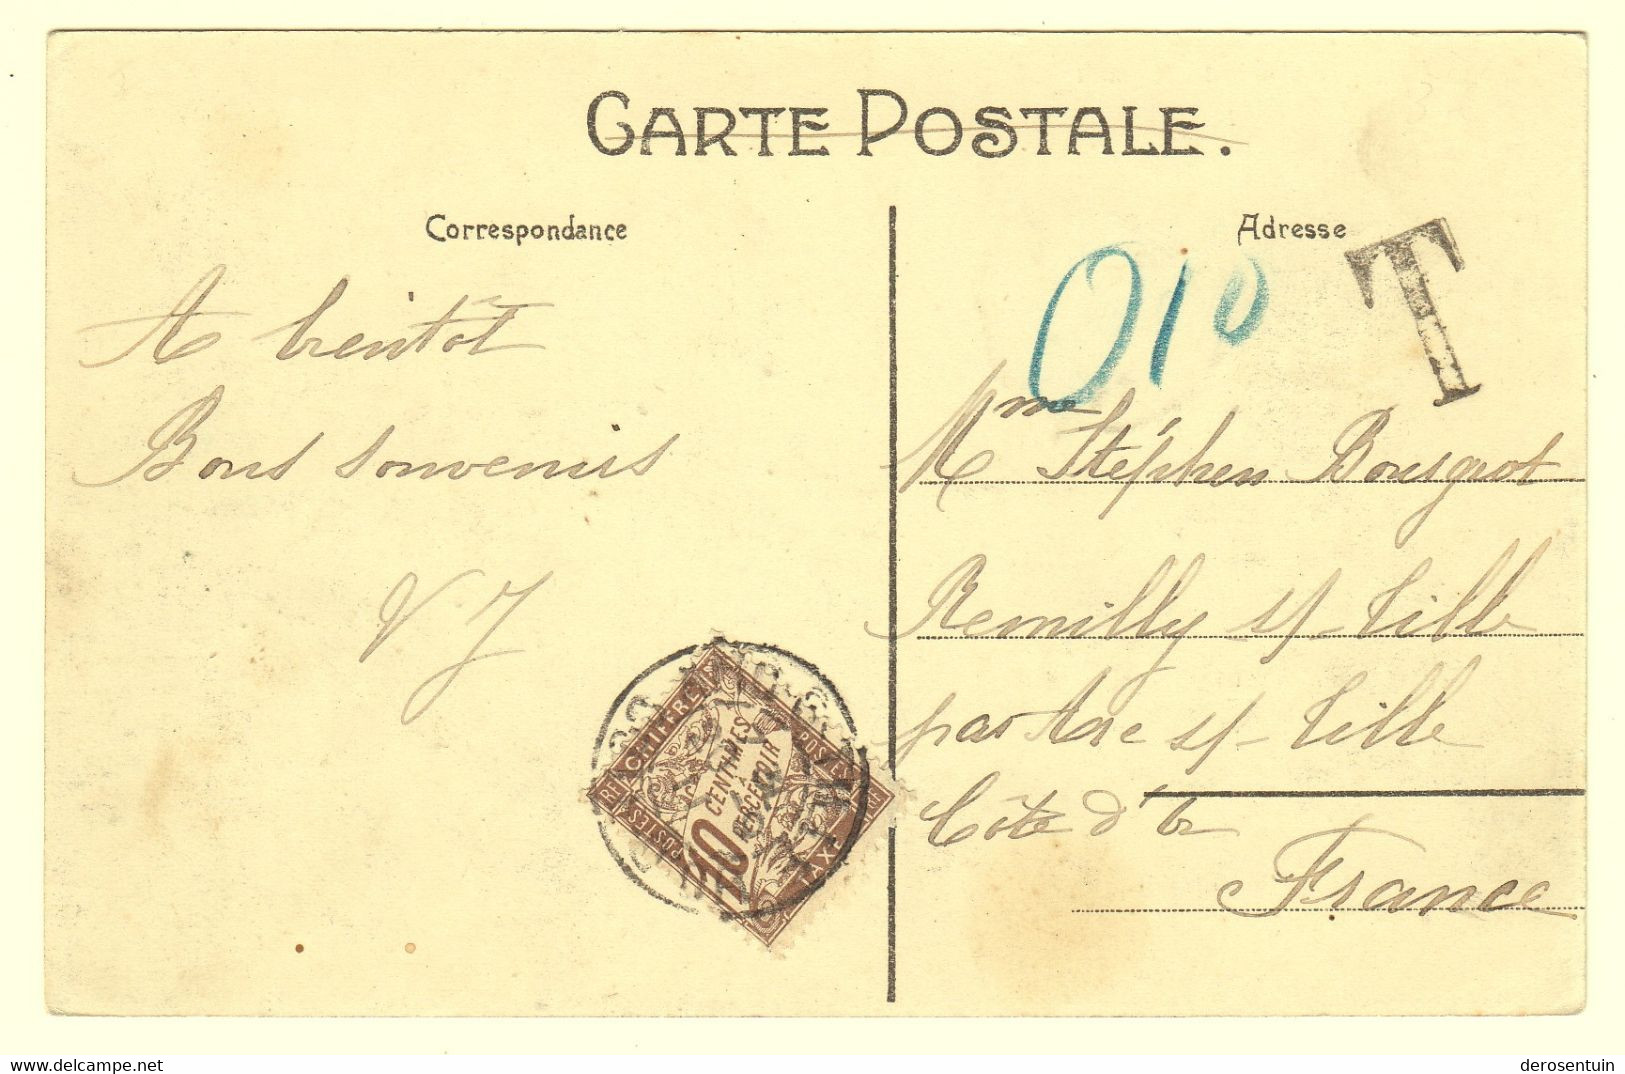 CARTE POSTALE.
Correspondance
Adresse
010
T
A bientôt
Bons souvenirs
V J
Mme Stéphen Bousgrot
Remilly s/ Tille
par Arc s/ Tille
Côte d'Or
France
CHIFFRE
TAXE
POSTES
POSTES
10
CENTIMES
A
PERCEVOIR
www.delcampe.net
derosentuin